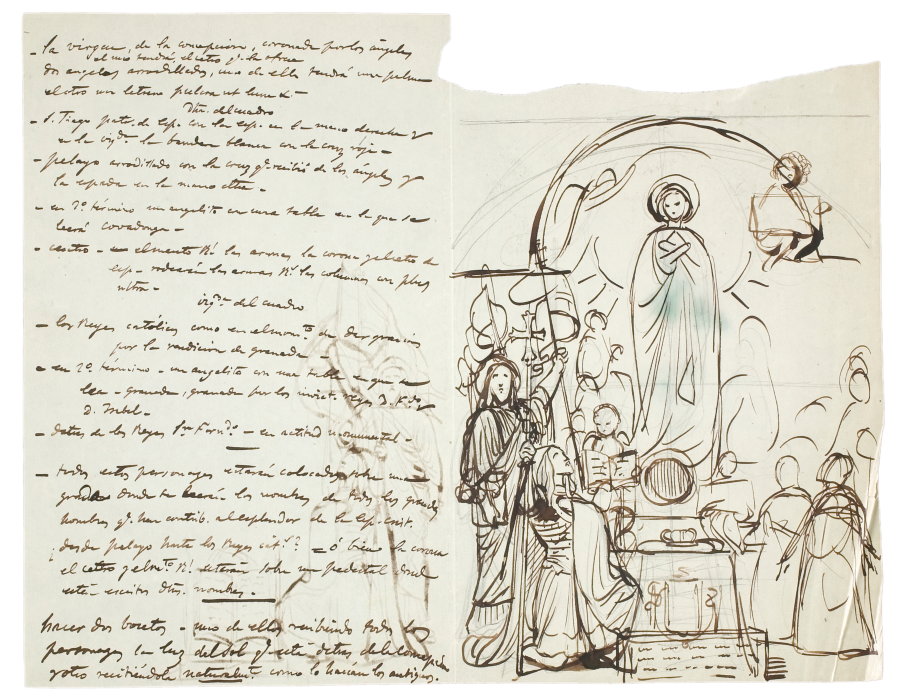 - la virgen, de la concepcion, coronada por los ángeles
el uno tendrá, el cetro q.e la ofrece
dos angeles arrodillados, uno de ellos tendrá una palma
el otro un letrero pulcra ut luna &
Dra. del cuadro
- S. Tiago patr. de Esp. con la esp. en la mano derecha y
en la izq.da la bandera blanca con la cruz roja -
- pelayo arrodillado con la cruz q.e recibió de los ángeles y
la espada en la mano otra -
- en 2.o término un angelito en una tabla en la que se
leerá covadonga -
- centro - en el manto R.l las armas la corona y el cetro de
esp. - rodearán las armas R.s las columnas con plus
ultra -
izq.da del cuadro
- los Reyes católicos como en el mom.to de dar gracias
por la rendicion de granada -
- en 2.o término - un angelito con una tabla en que se
lea - granada, granada por los invict. Reyes D. F.do y
D. Isabel -
- detras de los Reyes S.n Fern.do - en actitud monumental -
- todos estos personages estarán colocados sobre una
grada donde se leerán los nombres de todos los grandes
hombres q.e han contrib. al esplendor de la Esp. crist.
desde pelayo hasta los Reyes cat.s - ó bien la corona
el cetro y el m.to R.l estarán sobre un pedestal donde
estén escritos dhos. nombres. -
hacer dos bocetos - uno de ellos recibiendo todos los
personages la luz del sol q.e está detras de la concepcion
y otro recibiéndola naturalm.te como lo hacían los antiguos.